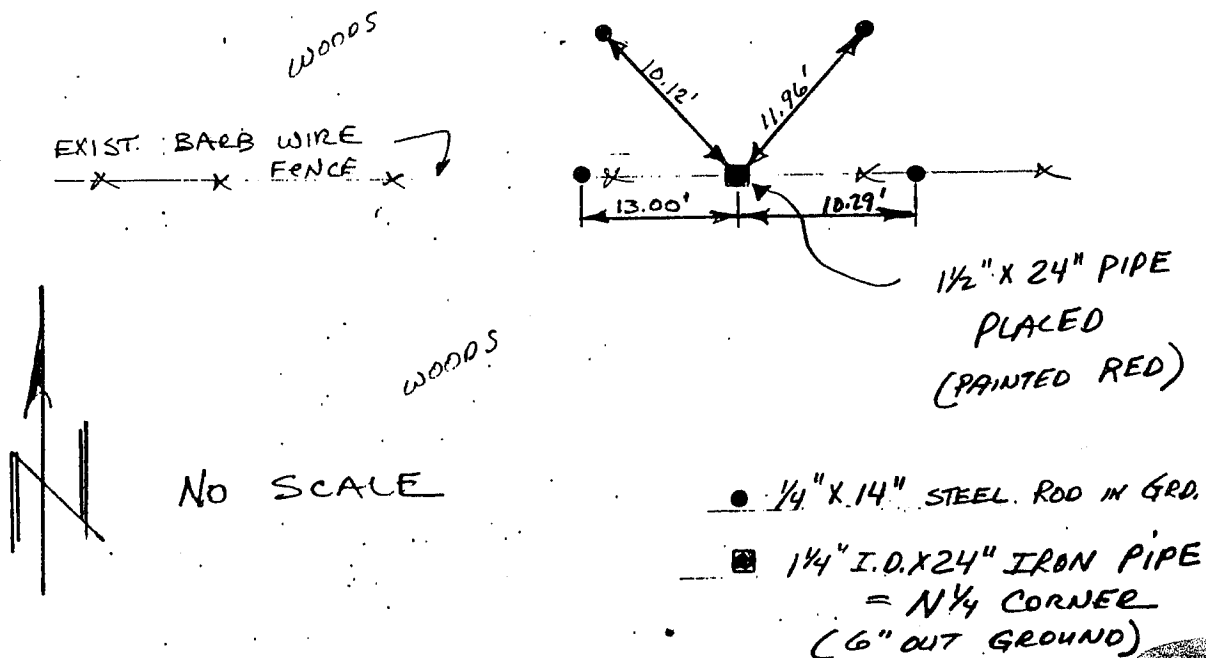 WOODS
10.12'
11.96'
EXIST. BARB WIRE
FENCE
13.00'
10.29'
1½" X 24" PIPE
PLACED
(PAINTED RED)
WOODS
N
NO SCALE
¼" X 14" STEEL ROD IN GRD.
1¼" I.D. X 24" IRON PIPE
= N ¼ CORNER
(6" OUT GROUND)